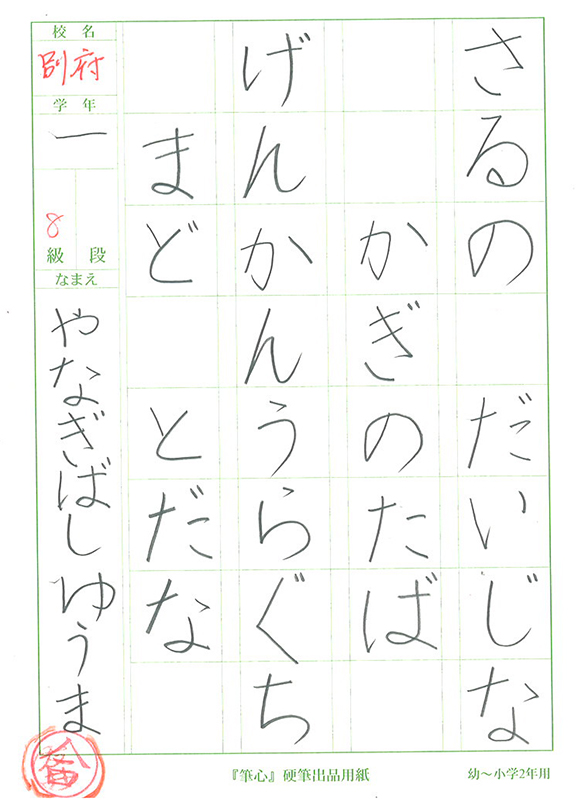 さるの だいじな
かぎのたば
げんかんうらぐち
まど とだな
校名
別府
学年
一
8
級 段
なまえ
やなぎばし ゆうま
『筆心』硬筆出品用紙
幼〜小学2年用